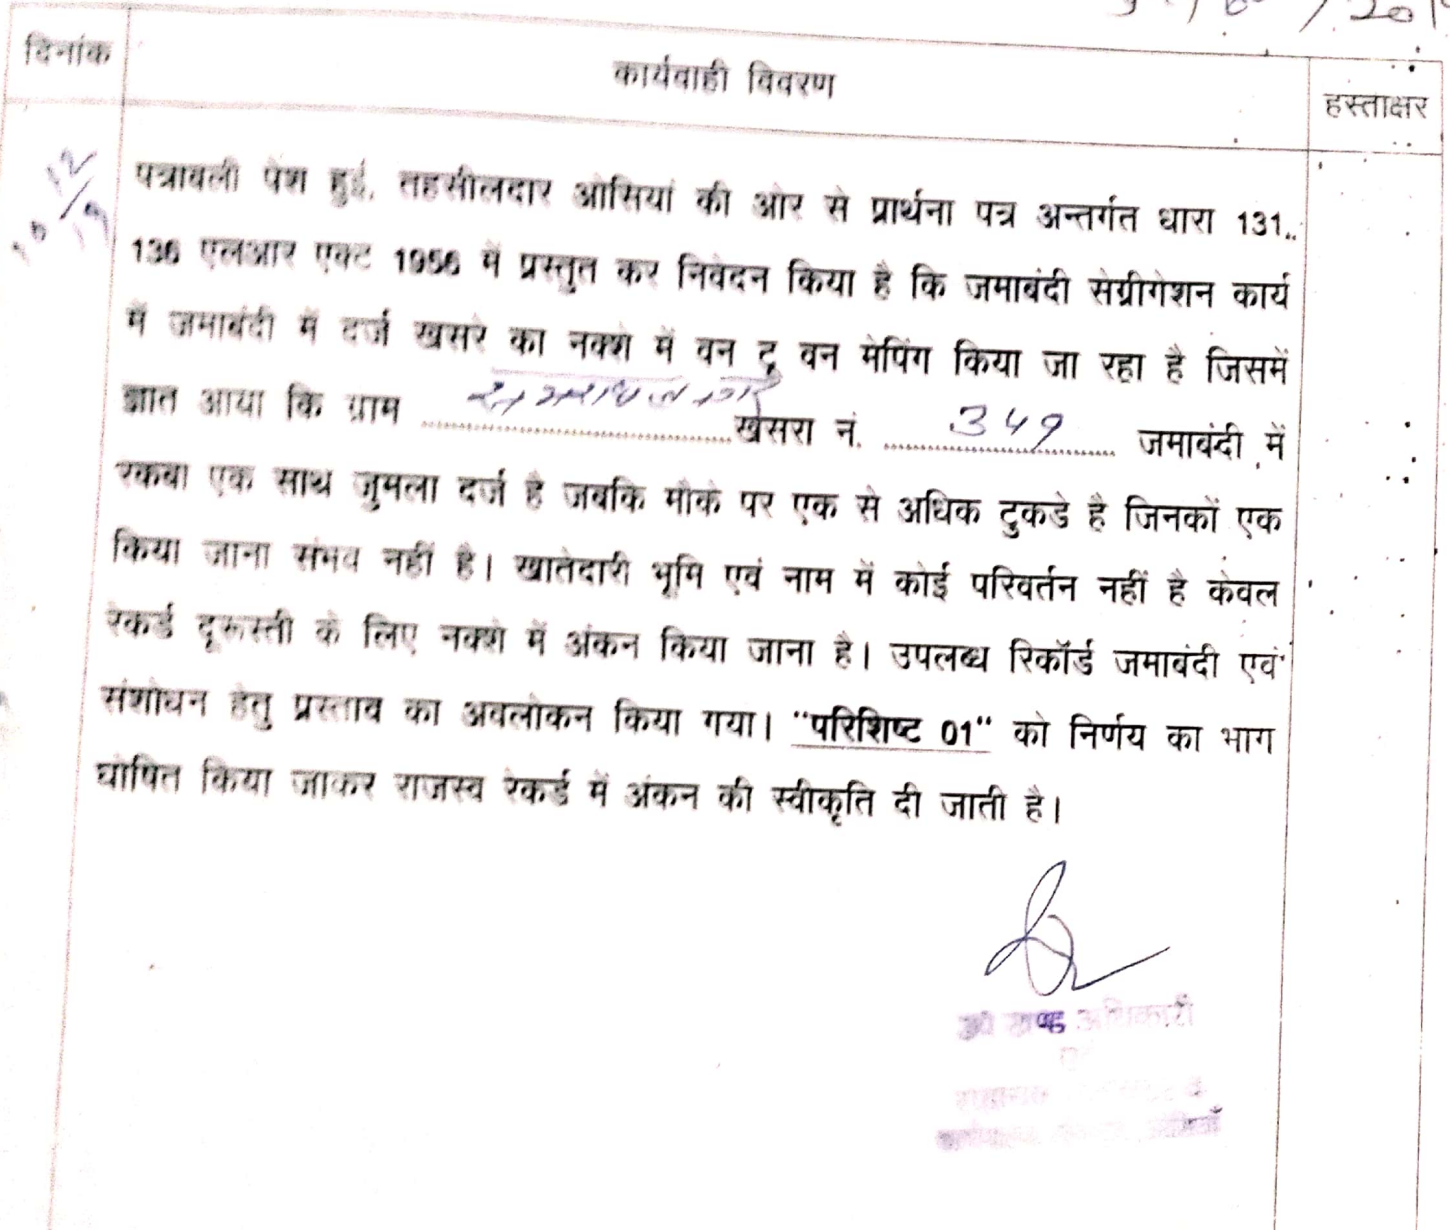 / 201
दिनांक
कार्यवाही विवरण
हस्ताक्षर
10/12/19
पत्रावली पेश हुई, तहसीलदार ओसियां की ओर से प्रार्थना पत्र अन्तर्गत धारा 131..
136 एलआर एक्ट 1956 में प्रस्तुत कर निवेदन किया है कि जमाबंदी सेग्रीगेशन कार्य
में जमाबंदी में दर्ज खसरे का नक्शे में वन टू वन मेपिंग किया जा रहा है जिसमें
ज्ञात आया कि ग्राम ........ खसरा नं. 349 जमाबंदी में
रकबा एक साथ जुमला दर्ज है जबकि मौके पर एक से अधिक टुकडे है जिनकों एक
किया जाना संभव नहीं है। खातेदारी भूमि एवं नाम में कोई परिवर्तन नहीं है केवल
रेकर्ड दूरूस्ती के लिए नक्शे में अंकन किया जाना है। उपलब्ध रिकॉर्ड जमाबंदी एवं
संशोधन हेतु प्रस्ताव का अवलोकन किया गया। "परिशिष्ट 01" को निर्णय का भाग
घोषित किया जाकर राजस्व रेकर्ड में अंकन की स्वीकृति दी जाती है।
उप खण्ड अधिकारी